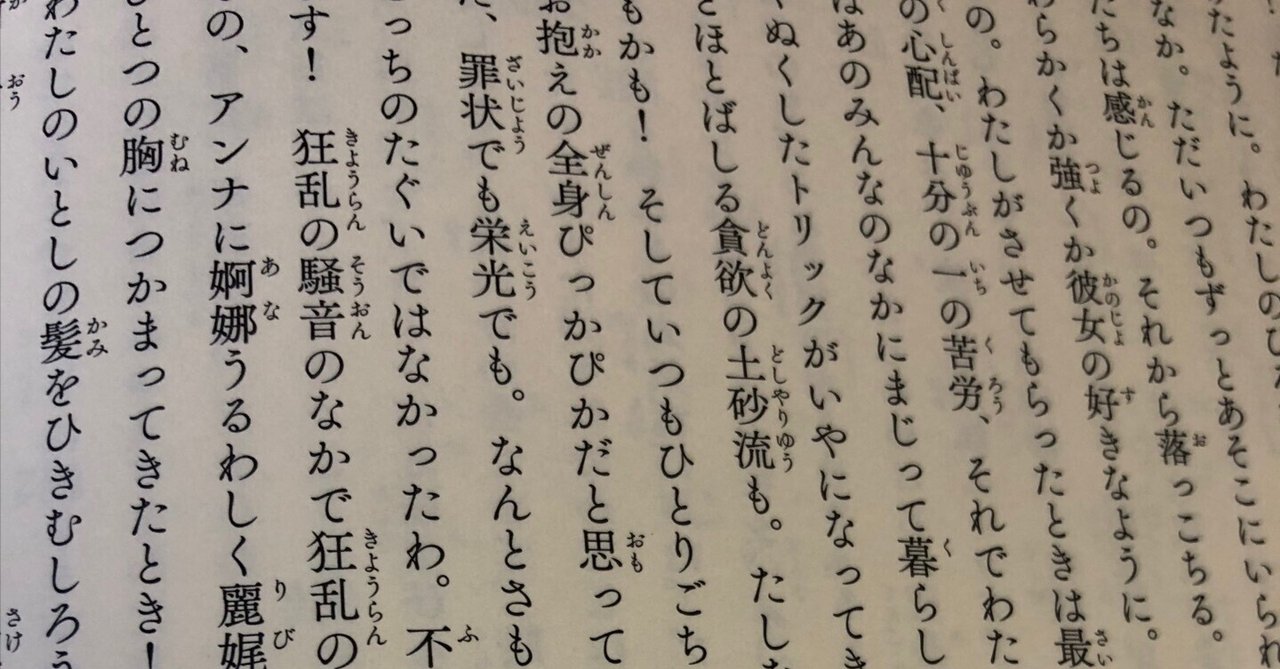 たように。わたしのひ
なか。ただいつもずっとあそこにいられ
たちは感じるの。それから落っこちる。
わらかくか強くか彼女の好きなように。
の。わたしがさせてもらったときは最
の心配、十分の一の苦労、それでわた
はあのみんなのなかにまじって暮らし
くぬくしたトリックがいやになってき
とほとばしる貪欲の土砂流も。たしな
もかも！　そしていつもひとりごち
お抱えの全身ぴっかぴかだと思って
、罪状でも栄光でも。なんとさも
っちのたぐいではなかったわ。不
す！　狂乱の騒音のなかで狂乱の
の、アンナに婀娜うるわしく麗娓
ひとつの胸につかまってきたとき！
わたしのいとしの髪をひきむしろう